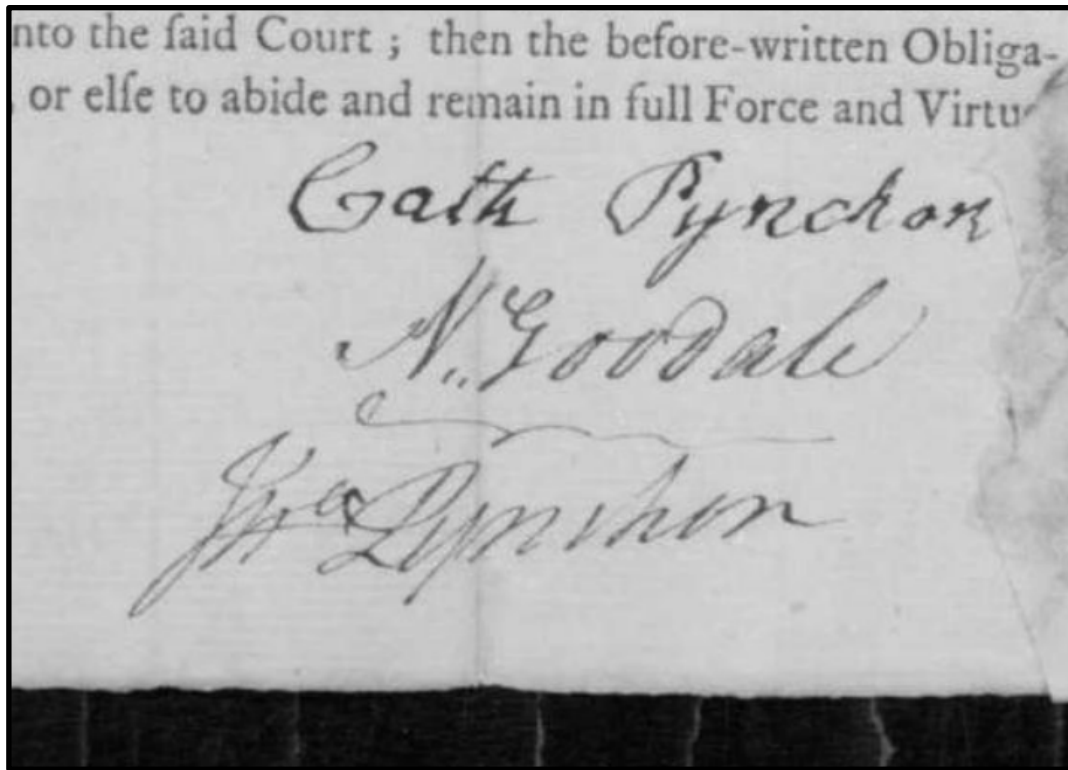 nto the ſaid Court ; then the before-written Obliga-
, or elſe to abide and remain in full Force and Virtu
Cath Pynchon
N. Goodale
Jno Pynchon